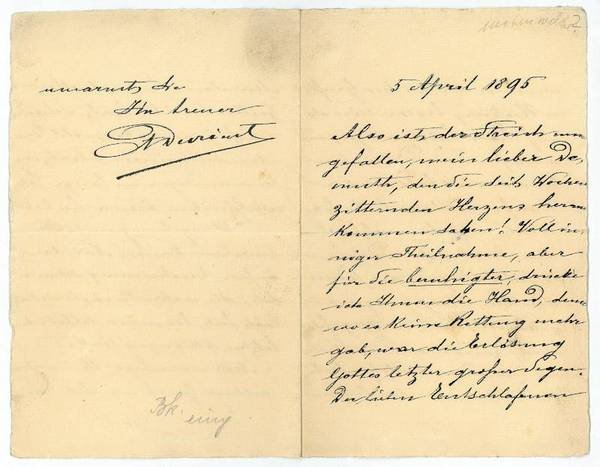 umarmt Sie
Ihr treuer
Devrient
5 April 1895
Also ist der Streich nun
gefallen, mein lieber De-
muth, den Sie seit Wochen
zitternden Herzens heran
kommen sahen! Voll in-
niger Theilnahme, aber
für Sie beruhigter, drücke
ich Ihnen die Hand, denn
wo es keine Rettung mehr
gab, war die Erlösung
Gottes letzter großer Segen.
Der lieben Entschlafenen